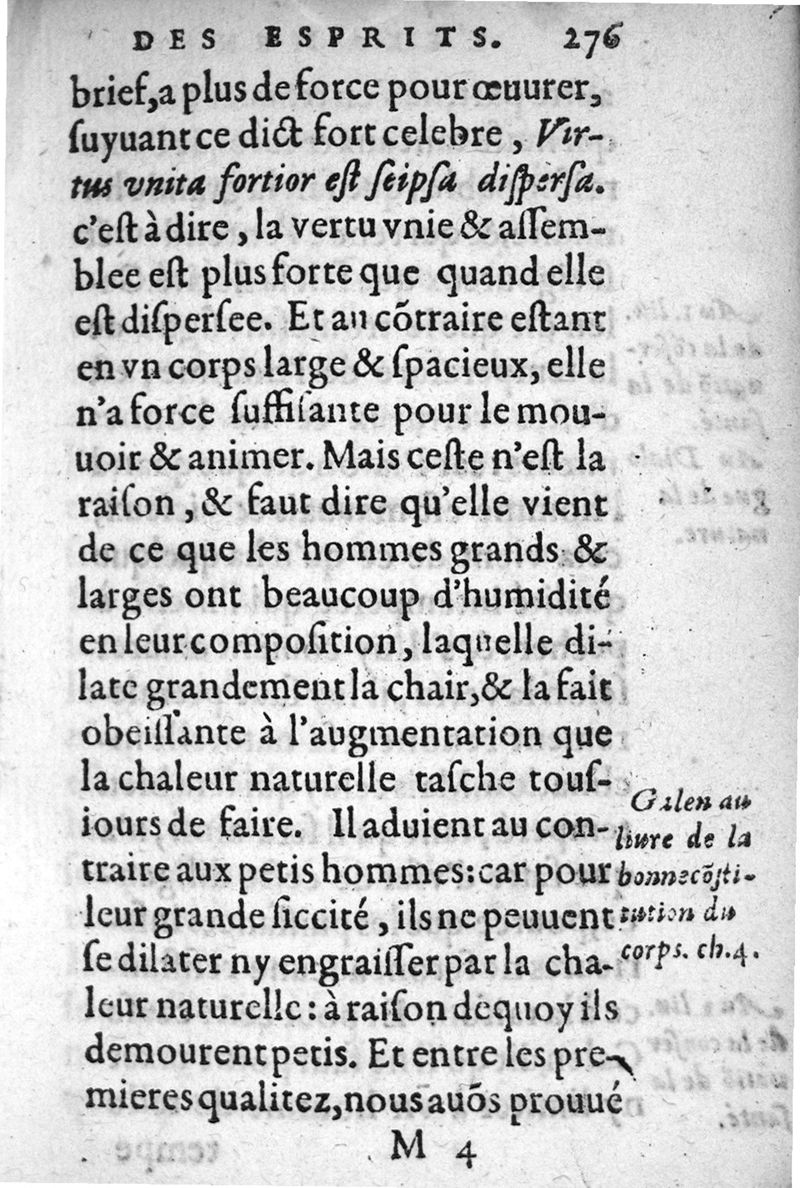 DES ESPRITS. 276
brief,a plus de force pour œuurer,
ſuyuant ce dict fort celebre, Vir-
tus vnita fortior eſt ſeipſa diſperſa.
c'eſt à dire, la vertu vnie & aſſem-
blee eſt plus forte que quand elle
eſt diſperſee. Et au cõtraire eſtant
en vn corps large & ſpacieux, elle
n'a force ſuffiſante pour le mou-
uoir & animer. Mais ceſte n'eſt la
raiſon, & faut dire qu'elle vient
de ce que les hommes grands &
larges ont beaucoup d'humidité
en leur compoſition, laquelle di-
late grandement la chair,& la fait
obeiſſante à l'augmentation que
la chaleur naturelle taſche touſ-
iours de faire. Il aduient au con-
traire aux petis hommes:car pour
leur grande ſiccité, ils ne peuuent
ſe dilater ny engraiſſer par la cha-
leur naturelle: à raiſon dequoy ils
demourent petis. Et entre les pre-
mieres qualitez,nous auõs prouué
M 4
Galen au
liure de la
bonne cõſti-
tution du
corps. ch.4.